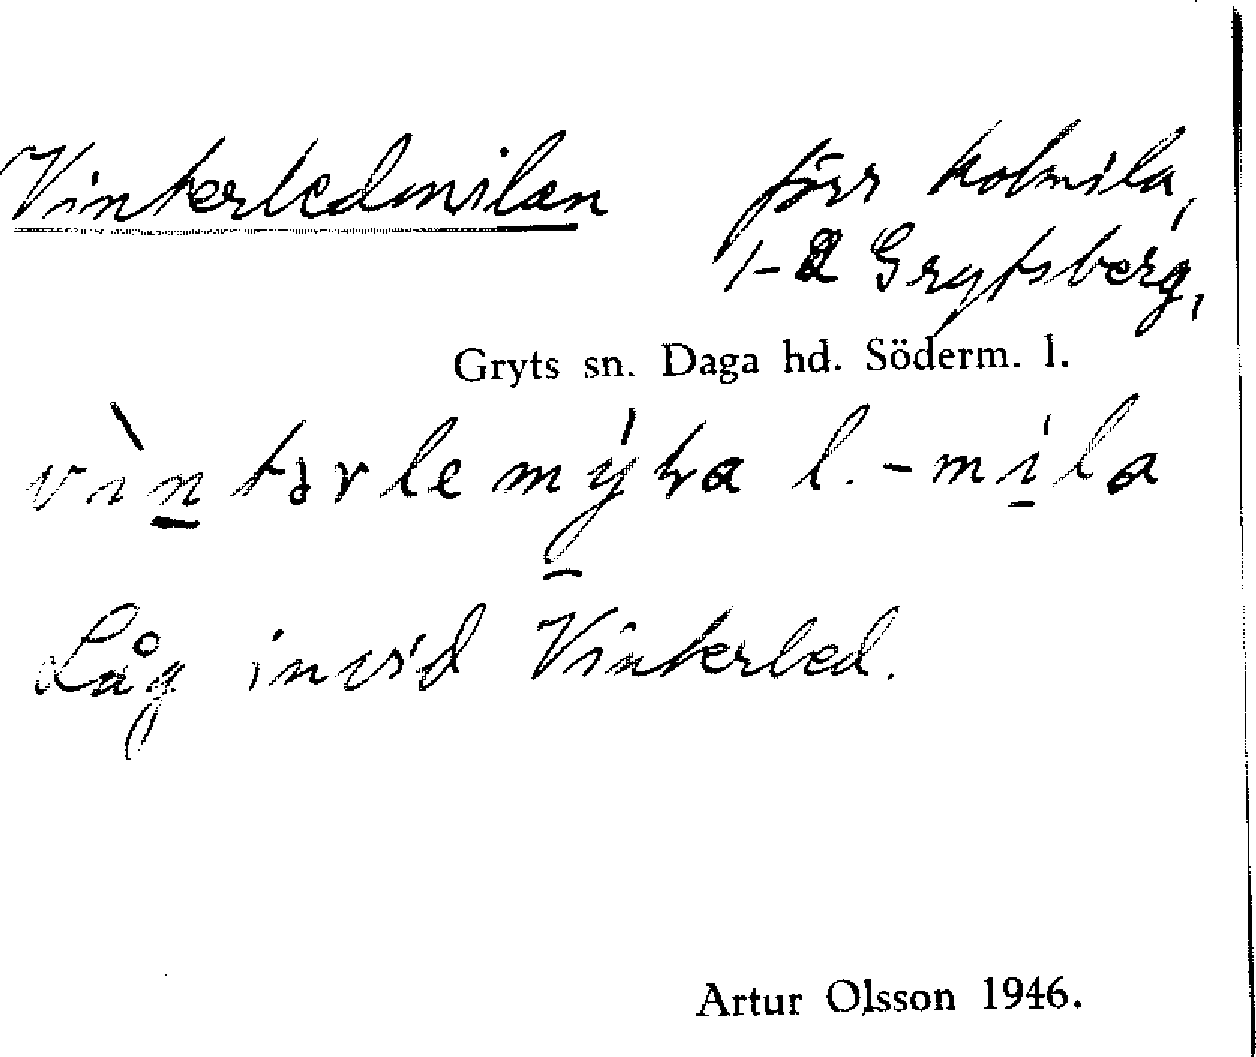 Vinterledmilan förr kolmila,
1-2 Grytsberg,
Gryts sn. Daga hd. Söderm. l.
l. -mila
Låg invid Vinterled.
Artur Olsson 1946.